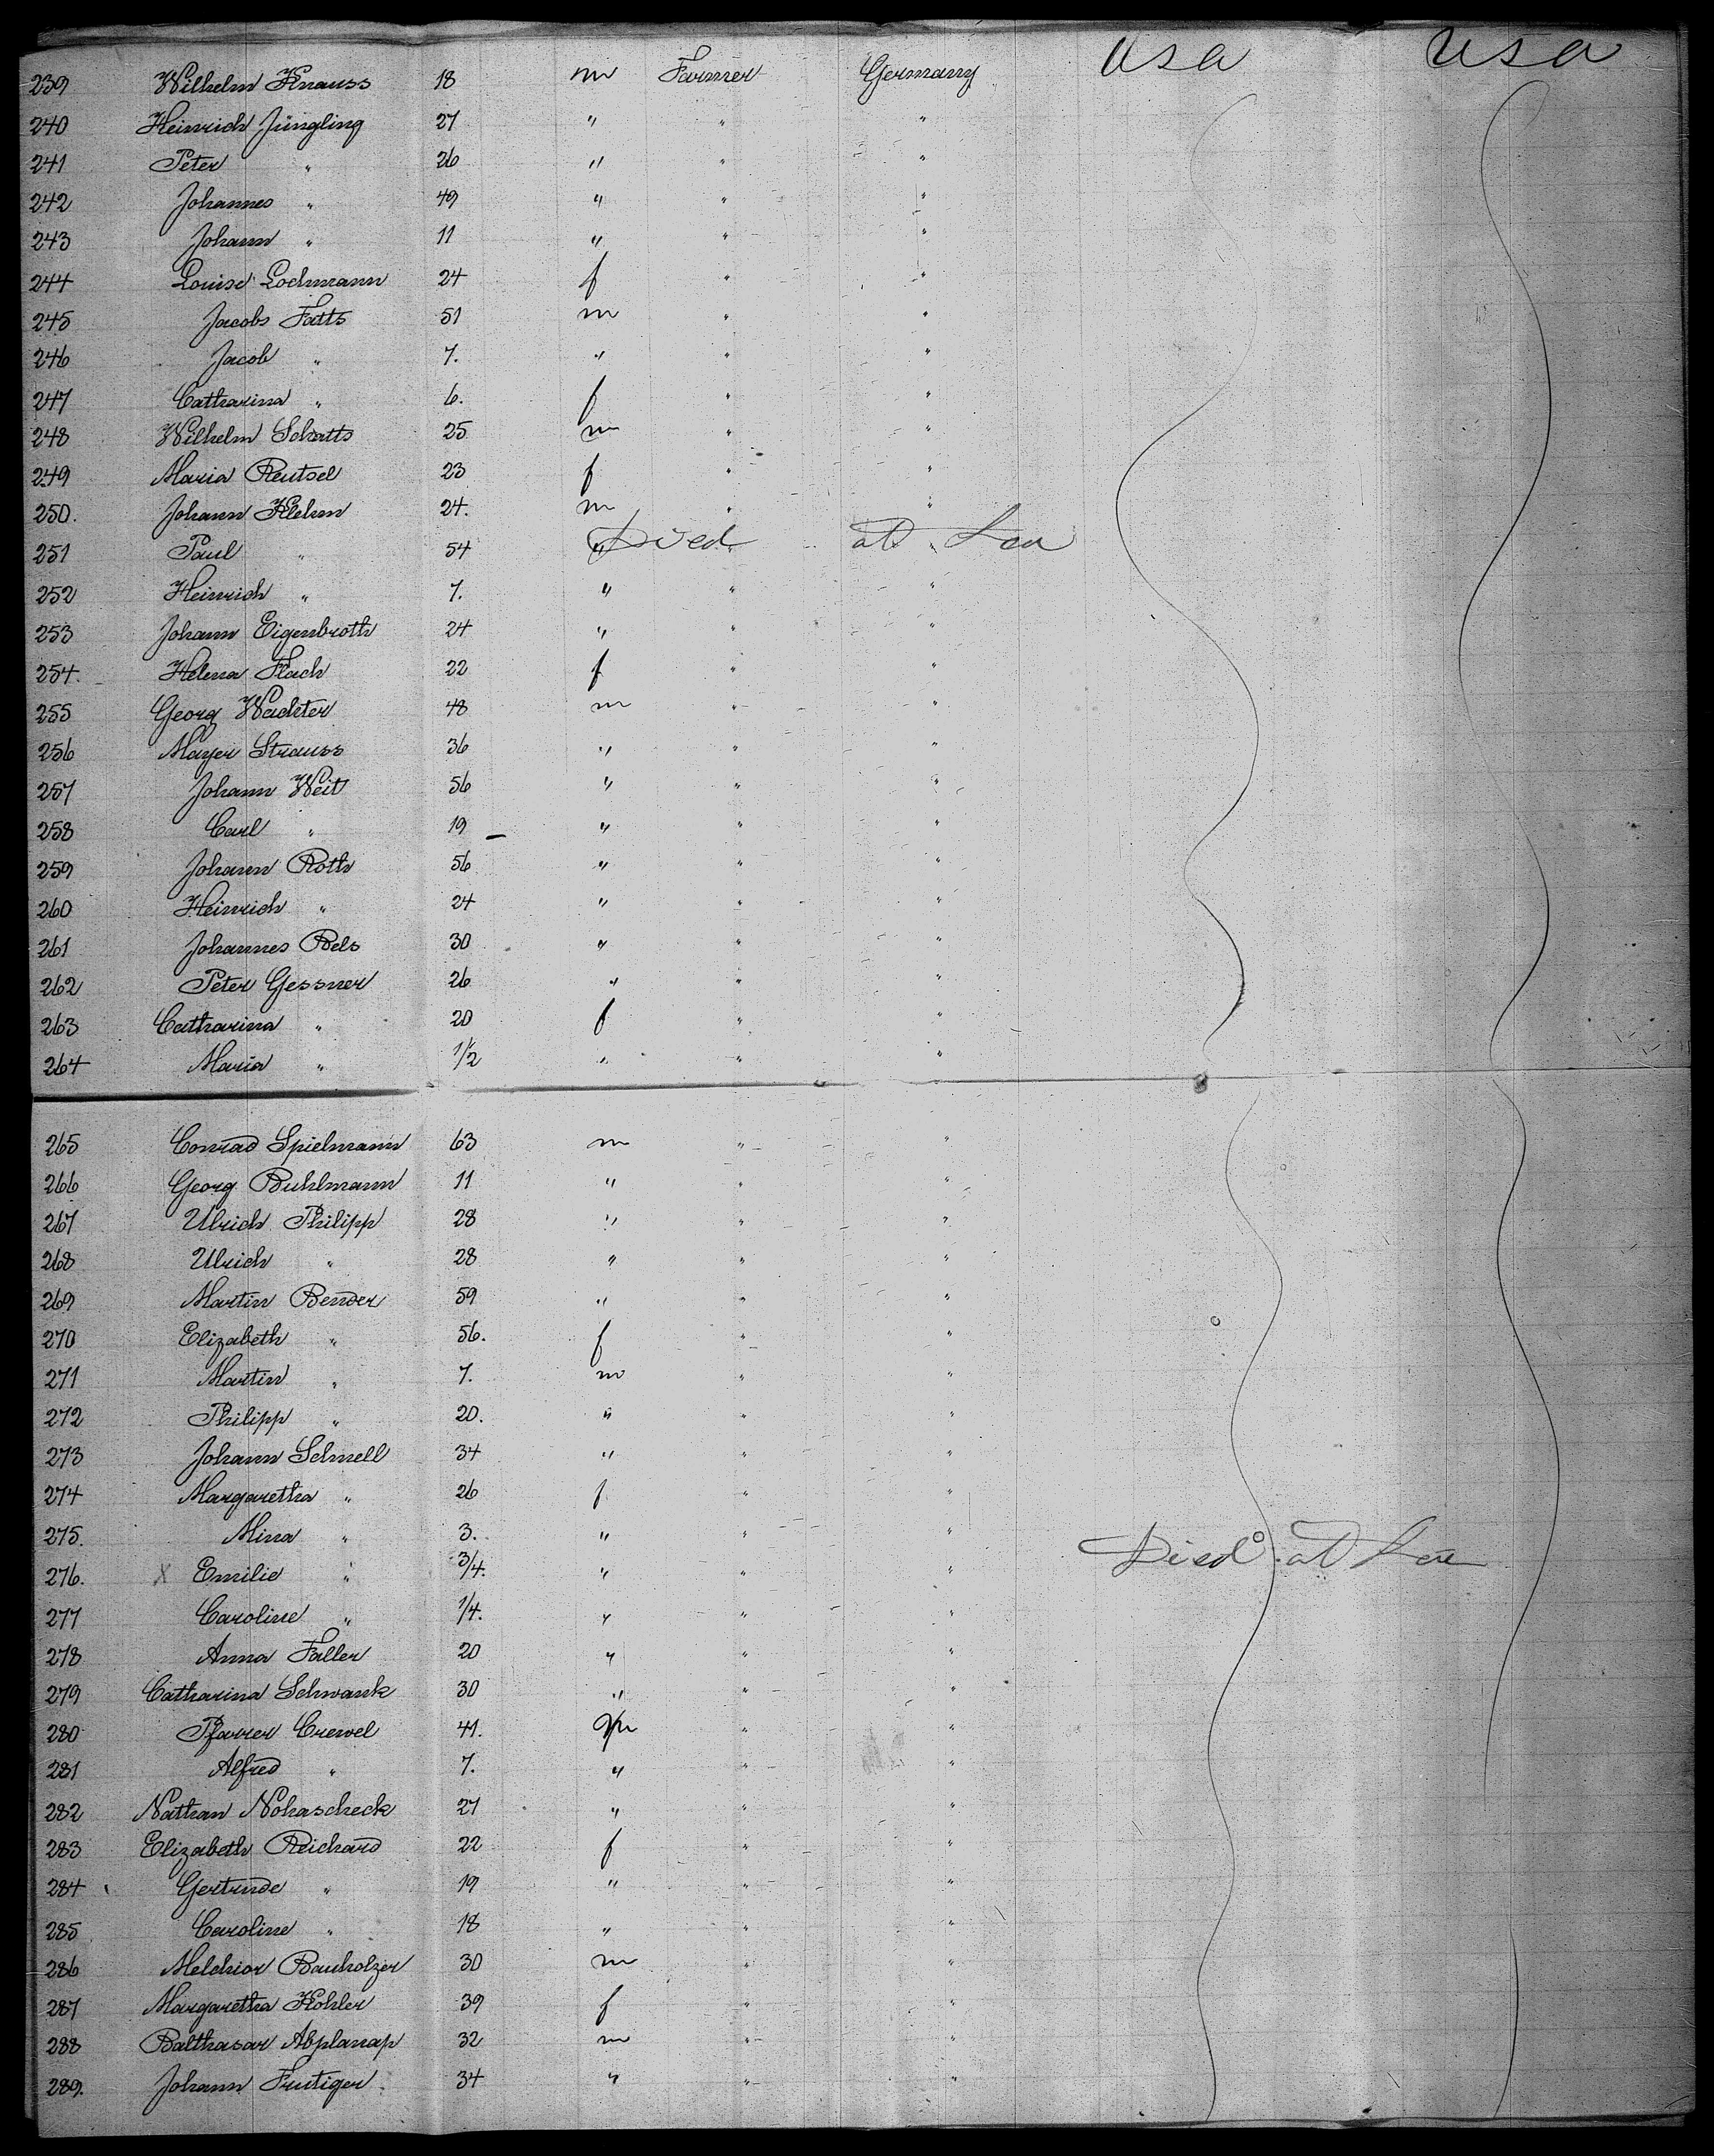 USA USA
239 Wilhelm Knauss 18 m Farmer Germany
240 Heinrich Jüngling 27 " " "
241 Peter " 26 " " "
242 Johannes " 49 " " "
243 Johann " 11 " " "
244 Louise Lochmann 24 f " "
245 Jacobs Fatts 51 m " "
246 Jacob " 7. " " "
247 Catharina " 6. f " "
248 Wilhelm Schatts 25 m " "
249 Maria Reutsel 23 f " "
250. Johann Klehm 24. m " "
251 Paul " 54 " Died at Sea
252 Heinrich " 7. " " "
253 Johann Eigenbroth 24 " " "
254. Helena Flach 22 f " "
255 Georg Wachter 48 m " "
256 Mayer Strauss 36 " " "
257 Johann Weit 56 " " "
258 Carl " 19 " " "
259 Johann Roth 56 " " "
260 Heinrich " 24 " " "
261 Johannes Bels 30 " " "
262 Peter Gessner 26 " " "
263 Catharina " 20 f " "
264 Maria " 1/2 " " "
265 Conrad Spielmann 63 m " "
266 Georg Buhlmann 11 " " "
267 Ulrich Philipp 28 " " "
268 Ulrich " 28 " " "
269 Martin Bender 59 " " "
270 Elizabeth " 56. f " "
271 Martin " 7. m " "
272 Philipp " 20. " " "
273 Johann Schnell 34 " " "
274 Margaretha " 26 f " "
275. Mina " 3. " " "
276. x Emilie " 3/4. " " " Died at Sea
277 Caroline " 1/4. " " "
278 Anna Faller 20 " " "
279 Catharina Schwank 30 " " "
280 Pfarrer Crewel 41. m " "
281 Alfred " 7. " " "
282 Nathan Nohascheck 27 " " "
283 Elizabeth Reichard 22 f " "
284 Gertrude " 19 " " "
285 Caroline " 18 " " "
286 Melchior Bauholzer 30 m " "
287 Margaretha Kohler 39 f " "
288 Balthasar Abplanap 32 m " "
289. Johann Frutiger 34 " " "